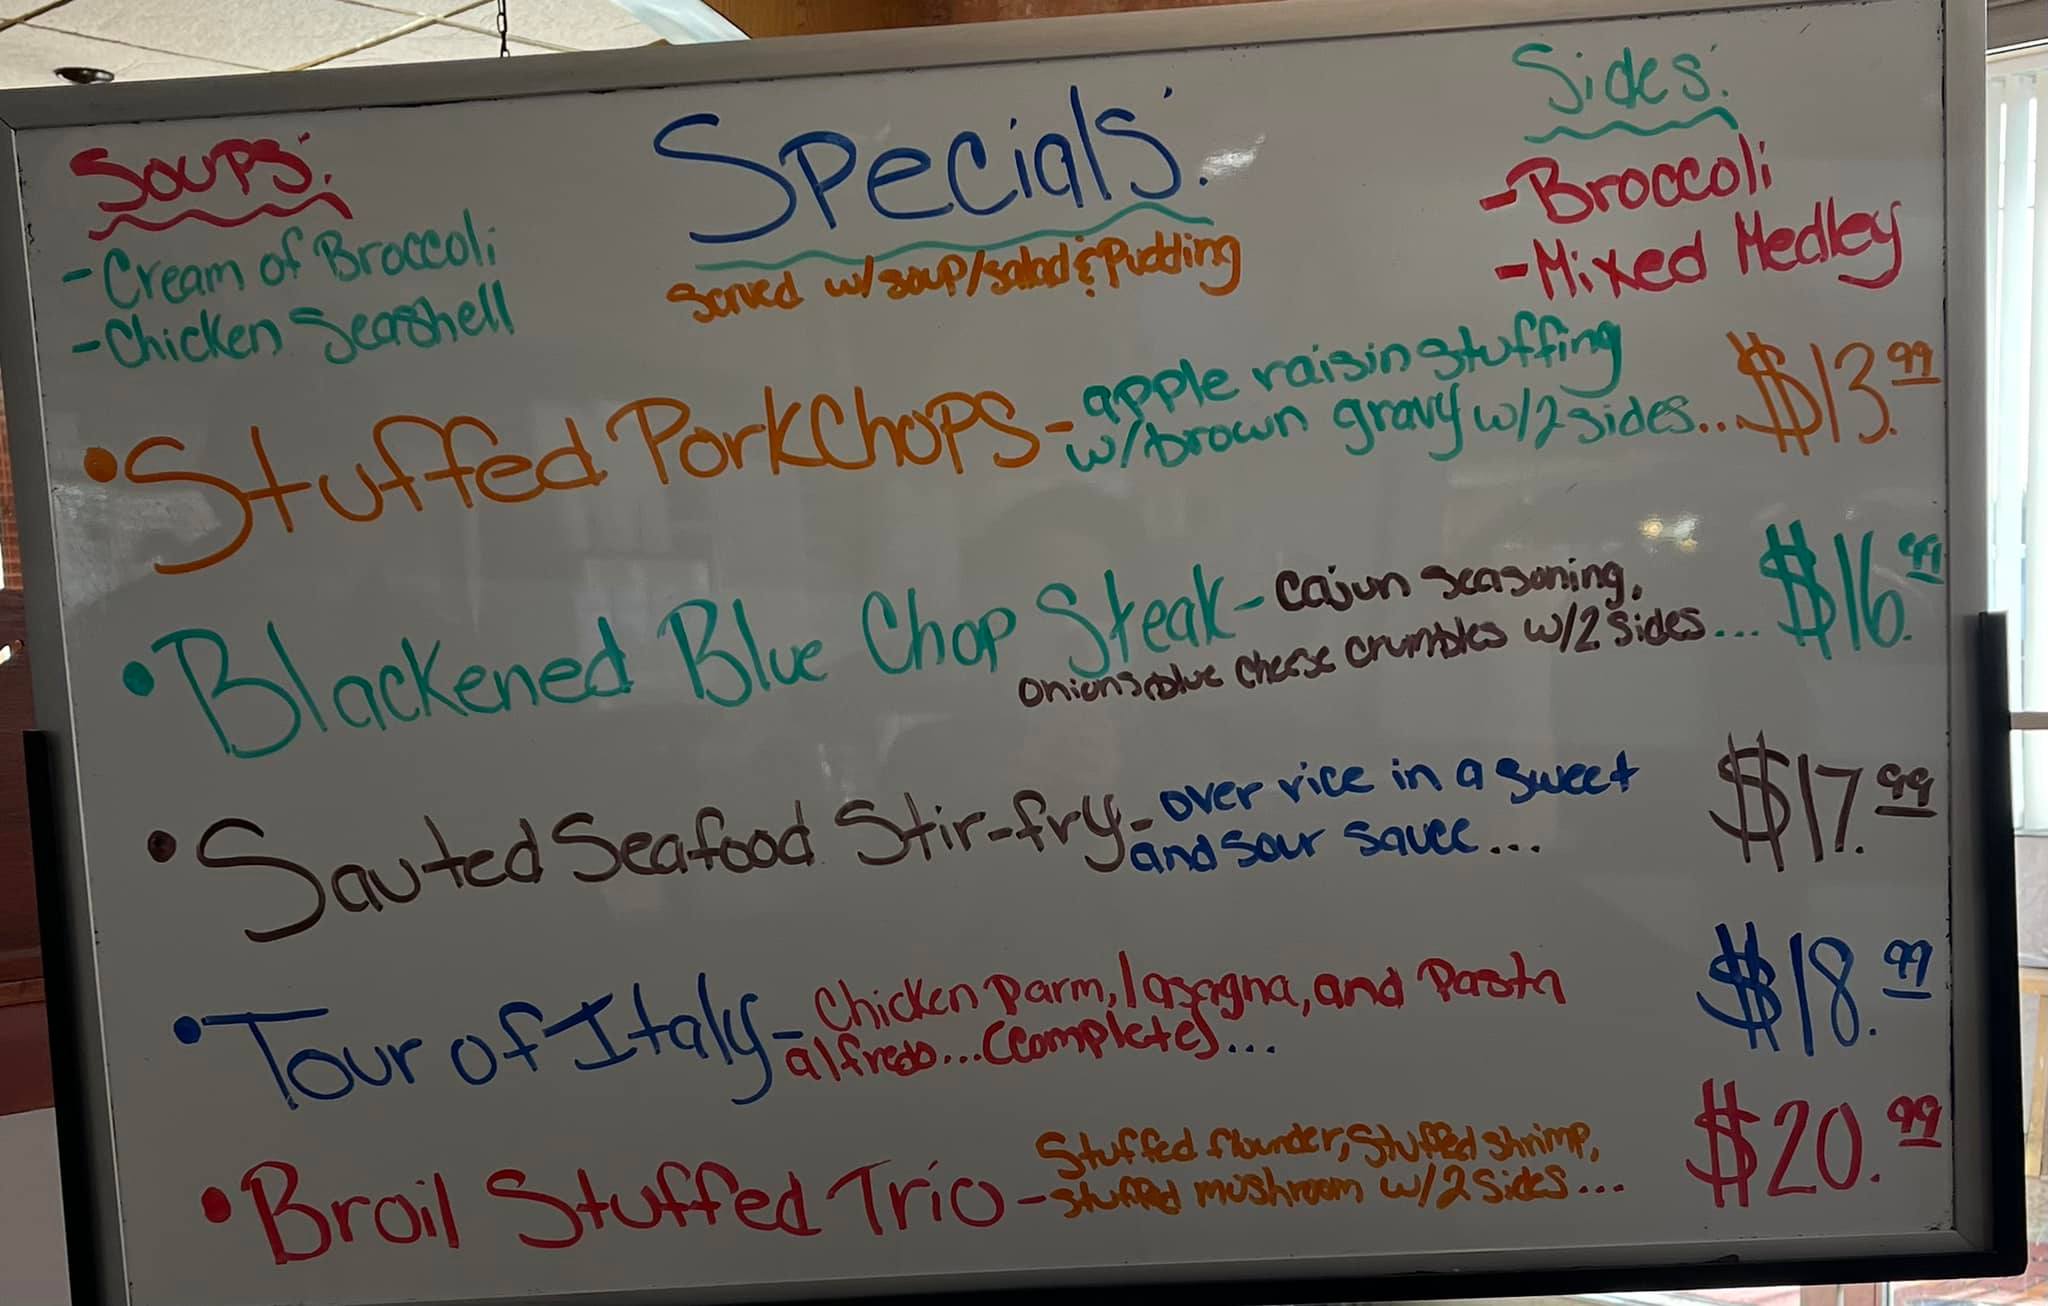 Soups:
- Cream of Broccoli
- Chicken Seashell
Specials:
Served w/soup/salad & Pudding
Sides:
- Broccoli
- Mixed Medley
• Stuffed PorkChops - apple raisin stuffing
w/brown gravy w/2 sides... $13.99
• Blackened Blue Chop Steak - Cajun seasoning,
onions, blue cheese crumbles w/2 sides... $16.99
• Sauted Seafood Stir-fry - over rice in a sweet
and sour sauce... $17.99
• Tour of Italy - Chicken parm, lasagna, and Pasta
alfredo... (completes)... $18.99
• Broil Stuffed Trio - Stuffed flounder, Stuffed shrimp,
stuffed mushroom w/2 sides... $20.99